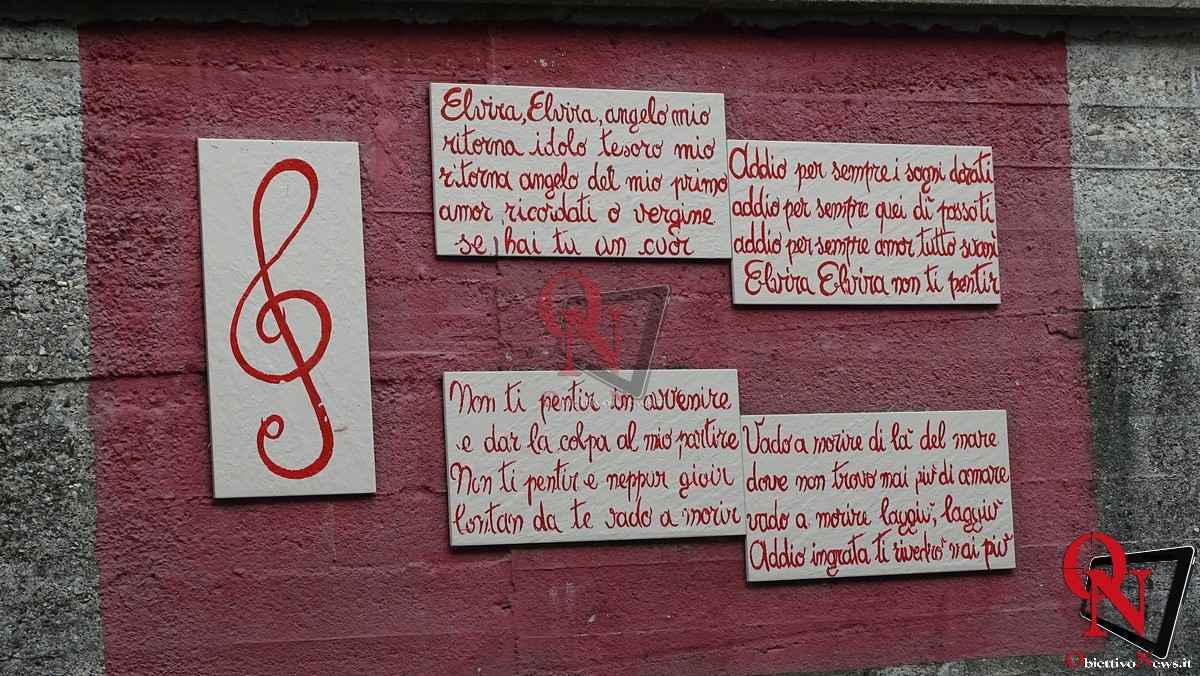 Elvira, Elvira, angelo mio
ritorna idolo tesoro mio
ritorna angelo del mio primo
amor, ricordati o vergine
se hai tu un cuor
Addio per sempre i sogni dorati
addio per sempre quei dì passati
addio per sempre amor tutto svanì
Elvira Elvira non ti pentir
Non ti pentir in avvenire
e dar la colpa al mio partire
Non ti pentir e neppur gioir
lontan da te vado a morir
Vado a morire di là del mare
dove non trovo mai più di amare
vado a morire laggiù, laggiù
Addio ingrata ti rivedrò mai più
ON
ON
Obiettivo News.it